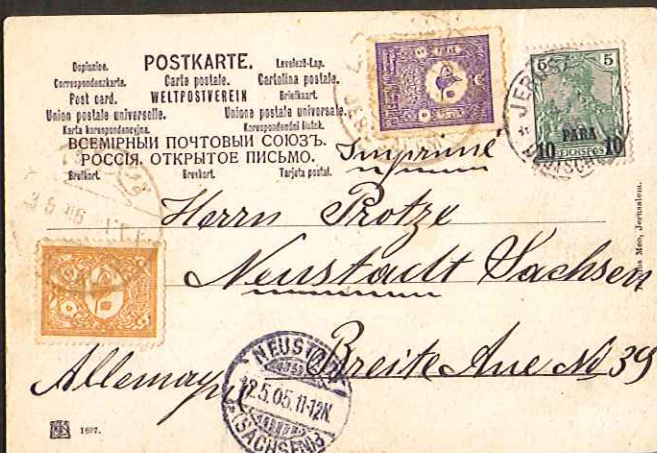 Dopisnice. POSTKARTE. Levelező-Lap.
Correspondenzkarte. Carte postale. Cartolina postale.
Post card. WELTPOSTVEREIN Briefkaart.
Union postale universelle. Unione postale universale.
Karta korespondencyjna. Korespondenční lístek.
ВСЕМІРНЫЙ ПОЧТОВЫЙ СОЮЗЪ.
РОССІЯ. ОТКРЫТОЕ ПИСЬМО.
Brefkort. Brevkort. Tarjeta postal.
Imprimé
5 5
PARA
10 10
REICHSPOST
Herrn Protze
Neustadt Sachsen
Breite Aue No 39
Allemagne
NEUSTADT
12.5.05.11-12N.
(SACHSEN)
Jerusalem.
1697.